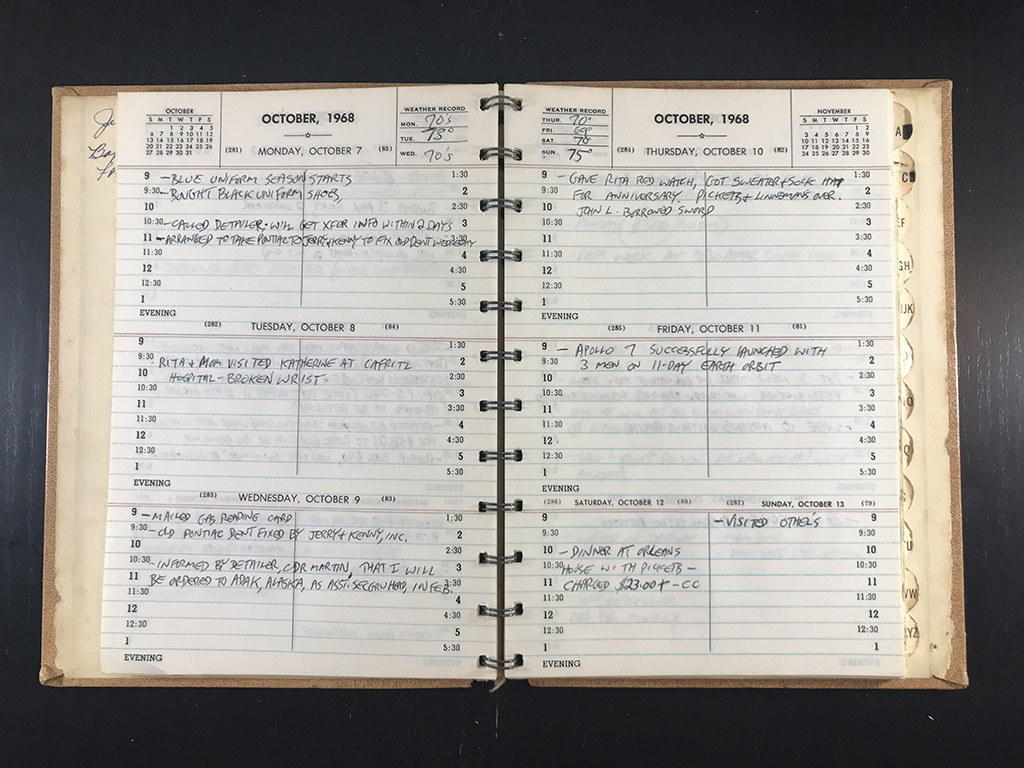 OCTOBER
S M T W T F S
1 2 3 4 5
6 7 8 9 10 11 12
13 14 15 16 17 18 19
20 21 22 23 24 25 26
27 28 29 30 31
OCTOBER, 1968
WEATHER RECORD
MON. 70's
TUE. 73°
WED. 70's
(281) MONDAY, OCTOBER 7 (85)
9 - BLUE UNIFORM SEASON STARTS 1:30
9:30 - BOUGHT BLACK UNIFORM SHOES, 2
10 2:30
10:30 - CALLED DETAILER. WILL GET XFER INFO WITHIN 2 DAYS 3
11 - ARRANGED TO TAKE PONTIAC TO JERRY + KENNY TO FIX OLD DENT WEDNESDAY 3:30
11:30 4
12 4:30
12:30 5
1 5:30
EVENING
(282) TUESDAY, OCTOBER 8 (84)
9 1:30
9:30 - RITA + MOM VISITED KATHERINE AT CAFRITZ 2
10 HOSPITAL - BROKEN WRIST 2:30
10:30 3
11 3:30
11:30 4
12 4:30
12:30 5
1 5:30
EVENING
(283) WEDNESDAY, OCTOBER 9 (83)
9 - MAILED GAS READING CARD 1:30
9:30 - OLD PONTIAC DENT FIXED BY JERRY + KENNY, INC. 2
10 2:30
10:30 - INFORMED BY DETAILER, CDR MARTIN, THAT I WILL 3
11 BE ORDERED TO ADAK, ALASKA, AS ASST. SECGRUHEAD, IN FEB. 3:30
11:30 4
12 4:30
12:30 5
1 5:30
EVENING
WEATHER RECORD
THUR. 70°
FRI. 69°
SAT. 70°
SUN. 75°
OCTOBER, 1968
NOVEMBER
S M T W T F S
1 2
3 4 5 6 7 8 9
10 11 12 13 14 15 16
17 18 19 20 21 22 23
24 25 26 27 28 29 30
(284) THURSDAY, OCTOBER 10 (82)
9 - GAVE RITA RED WATCH, GOT SWEATER + SOCK HAT 1:30
9:30 FOR ANNIVERSARY. PICKETS + LINEMANS OVER. 2
10 JOHN L. BORROWED SWORD 2:30
10:30 3
11 3:30
11:30 4
12 4:30
12:30 5
1 5:30
EVENING
(285) FRIDAY, OCTOBER 11 (81)
9 - APOLLO 7 SUCCESSFULLY LAUNCHED WITH 1:30
9:30 3 MEN ON 11-DAY EARTH ORBIT 2
10 2:30
10:30 3
11 3:30
11:30 4
12 4:30
12:30 5
1 5:30
EVENING
(286) SATURDAY, OCTOBER 12 (80) (287) SUNDAY, OCTOBER 13 (79)
9 - VISITED OTHEL'S 9
9:30 9:30
10 - DINNER AT ORLEANS 10
10:30 HOUSE WITH PICKETS - 10:30
11 CHARGED $23.00+ - CC 11
11:30 11:30
12 12
12:30 12:30
1 1
EVENING EVENING
A
C
EF
GH
IJK
Q
U
VW
XYZ